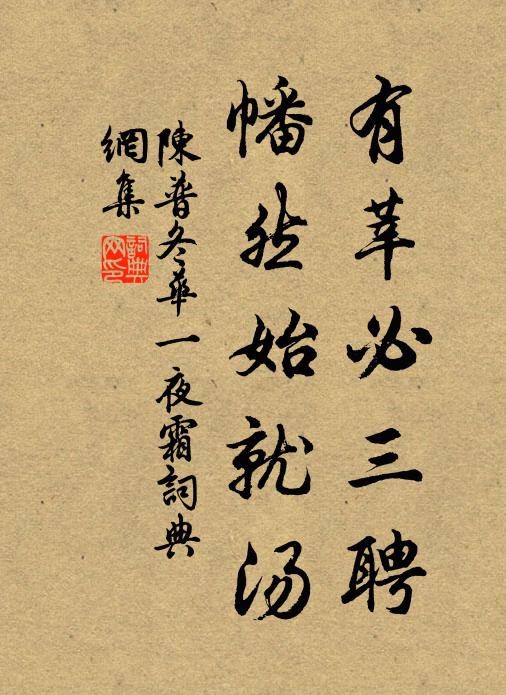 有莘必三聘
幡然始就湯
陳普冬華一夜霜詞典
網集
詞典
网印